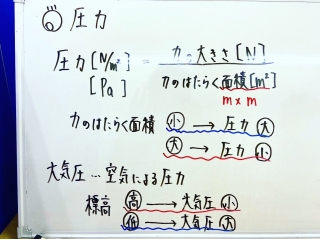 圧力
圧力[N/m²] = 力の大きさ[N]
[Pa] 力のはたらく面積[m²]
m×m
力のはたらく面積 小 → 圧力 大
大 → 圧力 小
大気圧…空気による圧力
標高 高 → 大気圧 小
低 → 大気圧 大